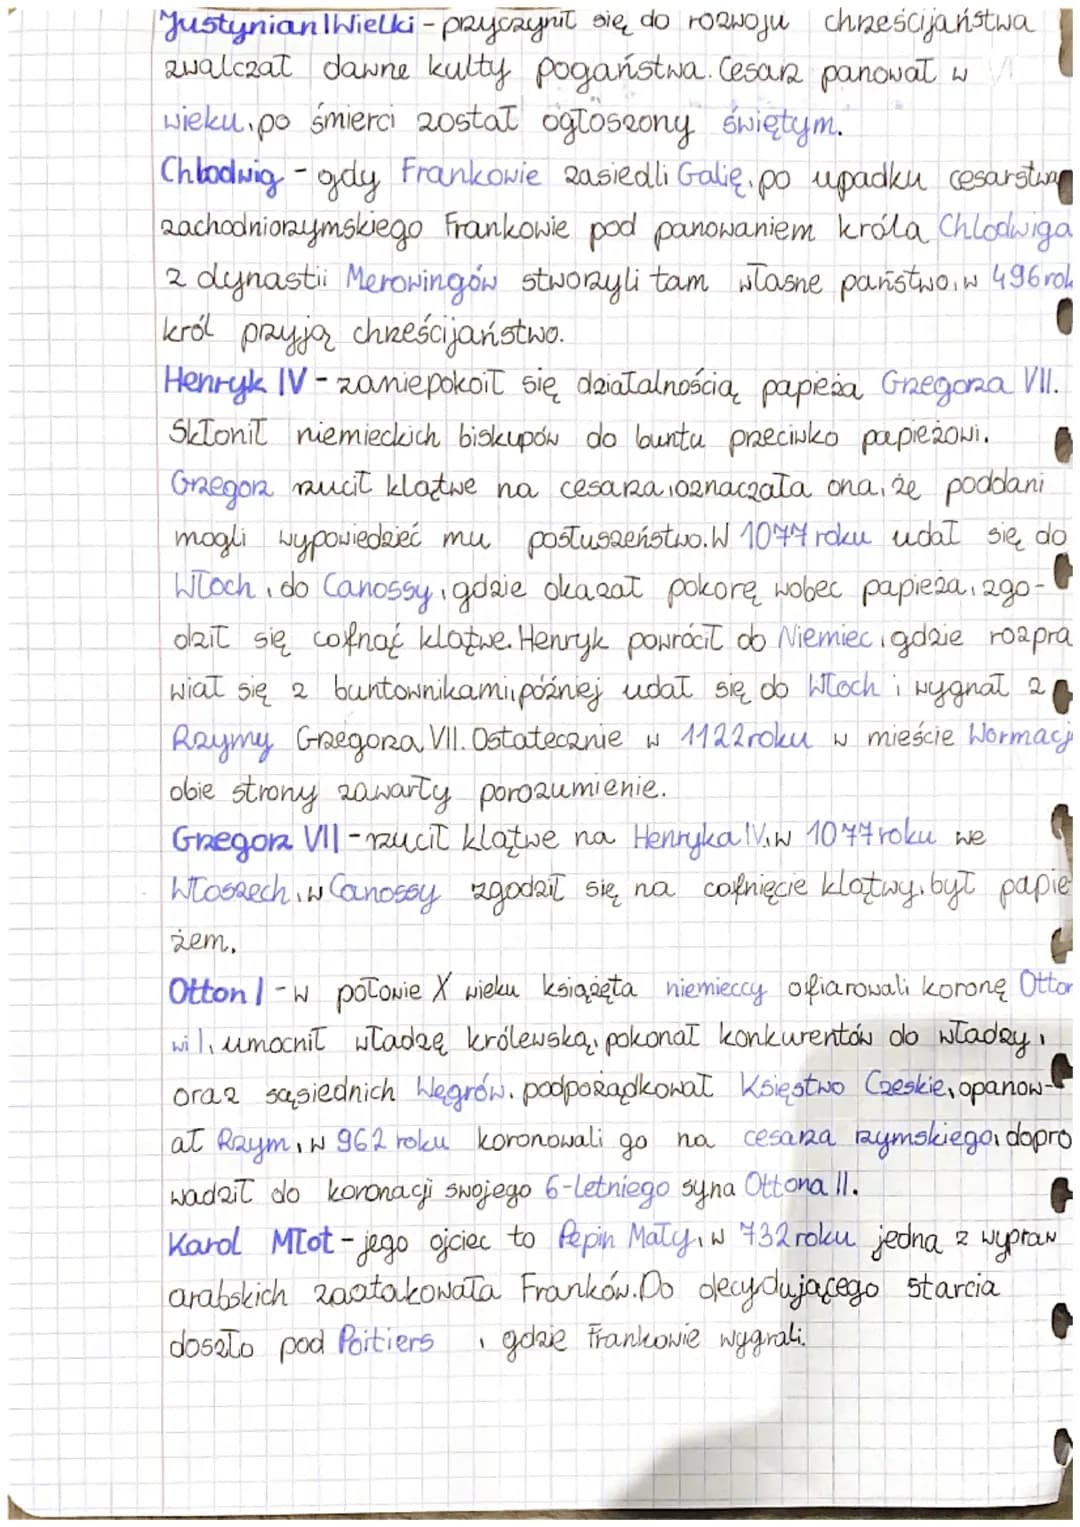 Justynian I Wielki - przyczynił się do rozwoju chrześcijaństwa
zwalczał dawne kulty pogaństwa. Cesarz panował w VI
wieku, po śmierci został ogłoszony świętym.
Chlodwig - gdy Frankowie zasiedli Galię, po upadku cesarstwa
zachodniorzymskiego Frankowie pod panowaniem króla Chlodwiga
z dynastii Merowingów stworzyli tam własne państwo, w 496 rok
król przyją chrześcijaństwo.
Henryk IV - zaniepokoił się działalnością papieża Grzegorza VII.
Skłonił niemieckich biskupów do buntu przeciwko papieżowi.
Grzegorz rzucił klątwe na cesarza, oznaczała ona, że poddani
mogli wypowiedzieć mu posłuszeństwo. W 1077 roku udał się do
Włoch, do Canossy, gdzie okazał pokorę wobec papieża, zgo-
dził się cofnąć klątwe. Henryk powrócił do Niemiec, gdzie rozpra
wiał się z buntownikami, później udał się do Włoch i wygnał z
Rzymy Grzegorza VII. Ostatecznie w 1122 roku w mieście Wormacj
obie strony zawarły porozumienie.
Grzegorz VII - rzucił klątwe na Henryka IV, w 1077 roku we
Włoszech, w Canossy zgodził się na cofnięcie klątwy, był papie
żem.
Otton I - w połowie X wieku książęta niemieccy ofiarowali koronę Otto
wi I, umocnił władzę królewską, pokonał konkurentów do władzy,
oraz sąsiednich Węgrów, podporządkował Księstwo Czeskie, opanow-
ał Rzym, w 962 roku koronowali go na cesarza rzymskiego, dopro
wadził do koronacji swojego 6-letniego syna Ottona II.
Karol Młot - jego ojciec to Pepin Mały, w 732 roku jedna z wypraw
arabskich zaatakowała Franków. Do decydującego starcia
doszło pod Poitiers , gdzie Frankowie wygrali.